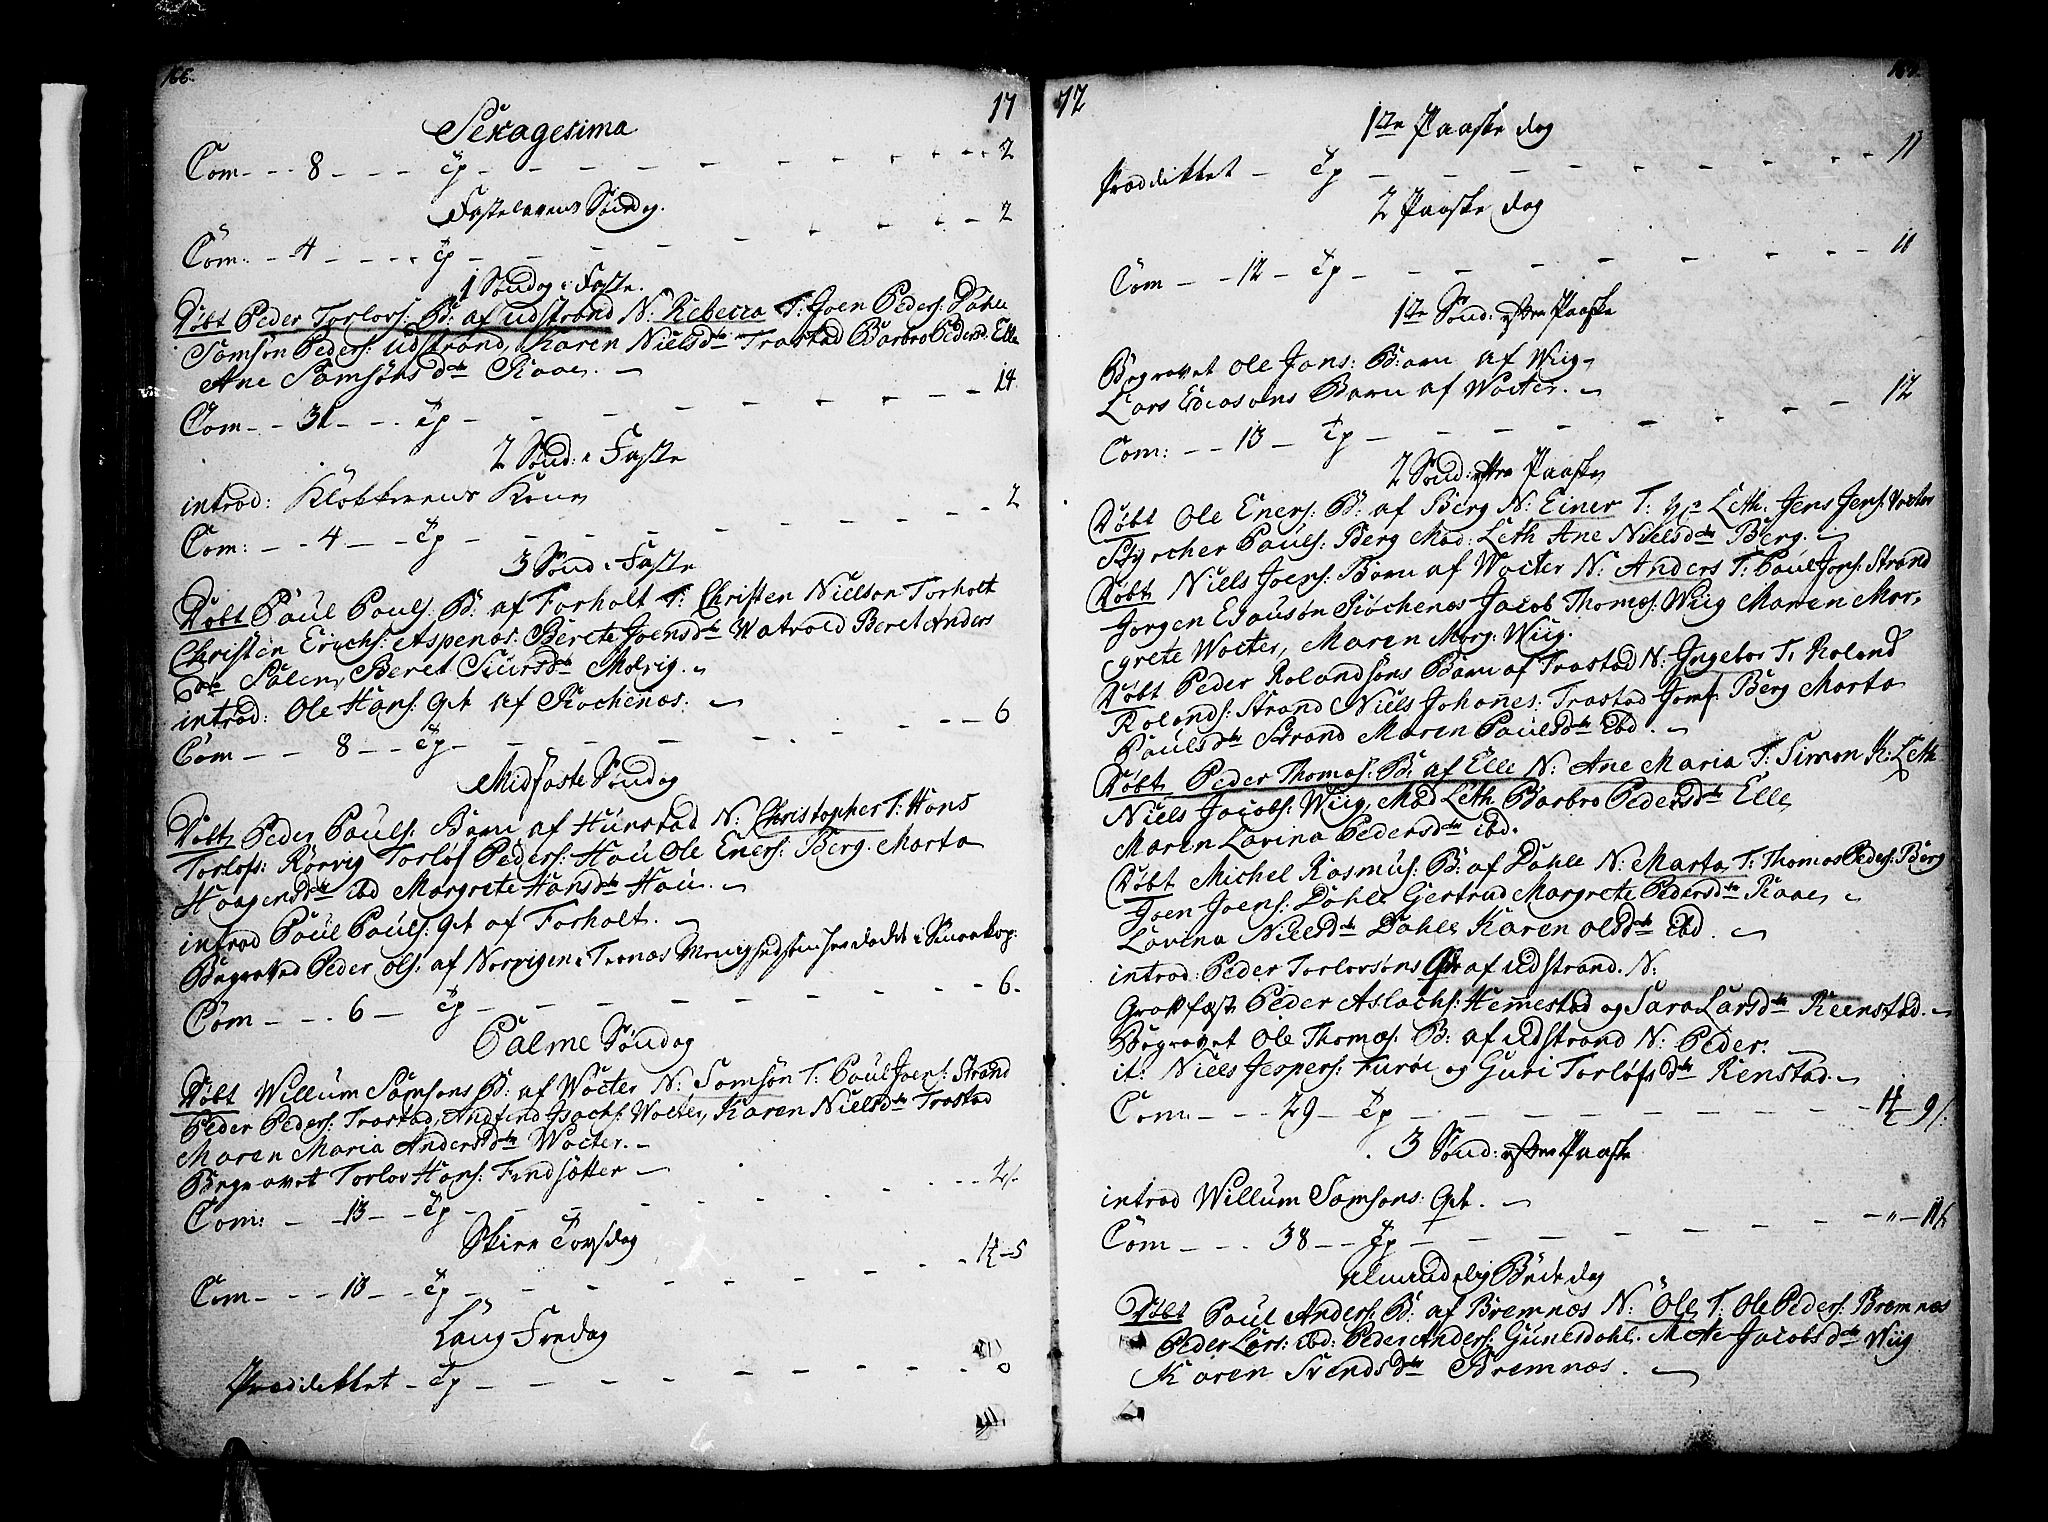 166.
17
Sexagesima
Com - - 8 - - - Tp - - - 2
Fastelavens Søndag.
Com: - - 4 - - - - Tp - - - 2
1 Søndag i Faste.
Døbt Peder Torlovs: B: af udstrand N: Rebecca T: Joen Peders: Dahle
Samson Peders: udstrand, Karen Nielsdtr Trastad Barbro Pedersd. Elle
Ane Samsønsdtr Raae. -
Com - - 31 - - - Tp - - - 14
2 Sønd: i Faste
introd: Klokkerens Kone
Com: - - 4 - - - Tp - - - 2
3 Sønd i Faste
Døbt Paul Pauls: B: af Forholt T: Christen Nielson Forholt
Christen Erichs: Aspenæs: Berete Joensdtr Watvold Beret Anders
dtr Salen, Beret Siursdtr Melvig. -
introd: Ole Hans: Qvt af Rochenæs. -
Com - - - 8 - - - Tp - - - 6
Midfaste Søndag
Døbt Peder Pauls: Barn af Hunstad N: Christopher T: Hans
Torlofs: Rørvig Torlof Peders: Hau Ole Eners: Berg. Marta
Haagensdtr ibd Margrete Hansdtr Hau. -
introd Paul Pauls: Qvt af Forholt. -
Begraved Peder Ols: af Norvigen i Trenæs Menighed som
Com - - - 6 - - Tp - - - 6.
Palme Søndag
Døbt Willum Samsons B: af Wocter N: Samson T: Paul Joens: Strand
Peder Peders: Trastad, Andfind Isachs: Wocter, Karen Nielsdtr Trastad
Maren Maria Andersdtr Wocter. -
Begravet Torlov Hans: Findsætter -
Com: - - 13 - - - Tp - - -
Skiere Torsdag
Com - - - 13 - - Tp - - -
Lang Fredag
Prædikket - Tp - - - 0
12
1te Paaske dag
Prædikket - Tp - - - 11
2 Paaske dag
Com - - 12 - Tp - - - 11
1te Sønd: efter Paaske
Begravet Ole Jons: Barn af Wiig
Lars Ediasons Barn af Wocter. -
Com: - - 13 - Tp - - - 12
2 Sønd: efter Paaske
Døbt Ole Eners: B: af Berg N: Einer T: Leth. Jens Jens: Wocter
Styrcher Pauls: Berg Mad: Leth Ane Nielsdtr Berg. -
Døbt Niels Joens: Barn af Wocter N: Anders T: Paul Jons: Strand
Jorgen Esauson Rochenæs Jacob Thomæs: Wiig Maren Mar-
grete Wocter, Maren Marg: Wiig.
Døbt Peder Rolandsøns Barn af Trastad N: Ingebor T: Roland
Rolands: Strand Niels Johannes: Trastad Jomf: Berg Marta
Paulsdtr Strand Maren Paulsdtr ibd. -
Døbt Peder Thomas: B: af Elle N: Ane Maria T: Simon K: Leth
Niels Jacobs: Wiig, Mad Leth Barbro Pedersdtr Elle
Maren Lavina Pedersdtr ibd.
Døbt Michel Rasmus: B: af Dahle N: Marta T: Thomas Peders: Berg
Joen Joens: Dahle Gertrud Margrete Pedersdtr Raae -
Lavina Nielsdtr Dahle Karen Olsdtr ibd. -
introd: Peder Torlovsøns Qvt af udstrand. N:
Peder Aslachs: Hemmestad og Sara Larsdtr Reenstad. -
Begravet Ole Thomæs: B: af udstrand N: Peder.
it: Niels Jespers: Furøe og Guri Torlofsdtr Renstad. -
Com: - - - 29 - Tp - - -
3 Sønd: efter Paaske
introd Willum Samsons: Qvt. -
Com - - - 38 - - Tp - - -
Almindelig Bededag
Døbt Paul Anders: B: af Bremnæs N: Ole T: Ole Peders: Bremnæs
Peder Lars: ibd: Peder Anders: Gunesdahl. Mette Jacobsdtr Wiig
Karen Svendsdtr Bremnæs. -